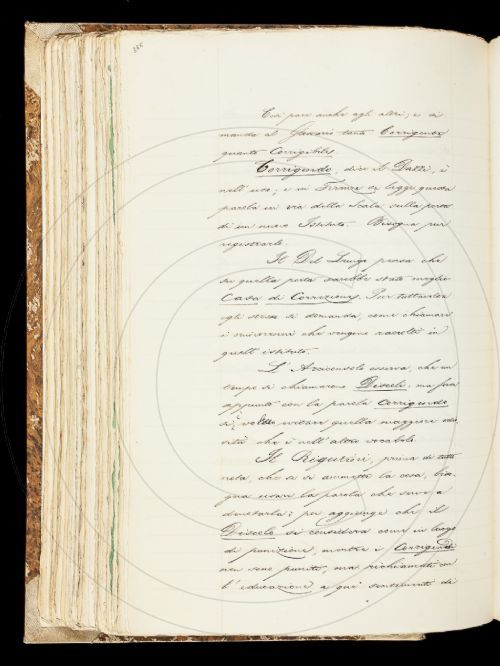 Così pare anche agli altri; e si
manda al Glossario tanto Corrigendo
quanto Corrigibile.
Corrigendo, dice il Dazzi, è
nell'uso; e in Firenze si legge questa
parola in via della Scala sulla porta
di un nuovo Istituto. Bisogna pur
registrarlo.
Il Del Lungo pensa che
su quella porta sarebbe stato meglio
Casa di Correzione. Pur tuttavolta
egli stesso si domanda, come chiamare
i minorenni che vengono raccolti in
quell'istituto.
L'Arciconsolo osserva, che un
tempo si chiamarono Discoli, ma fu
appunto con la parola Corrigendo
si volle evitare quella maggiore
che è nell'altro vocabolo.
Il Rigutini, prima di tutto
nota, che se si ammette la cosa, biso
gna usare la parola che serve a
denotarla; poi aggiunge che il
Discolo si considera come in luogo
di punizione, mentre i Corrigendi
non sono puniti, ma richiamati con
l'educazione a quei sentimenti da